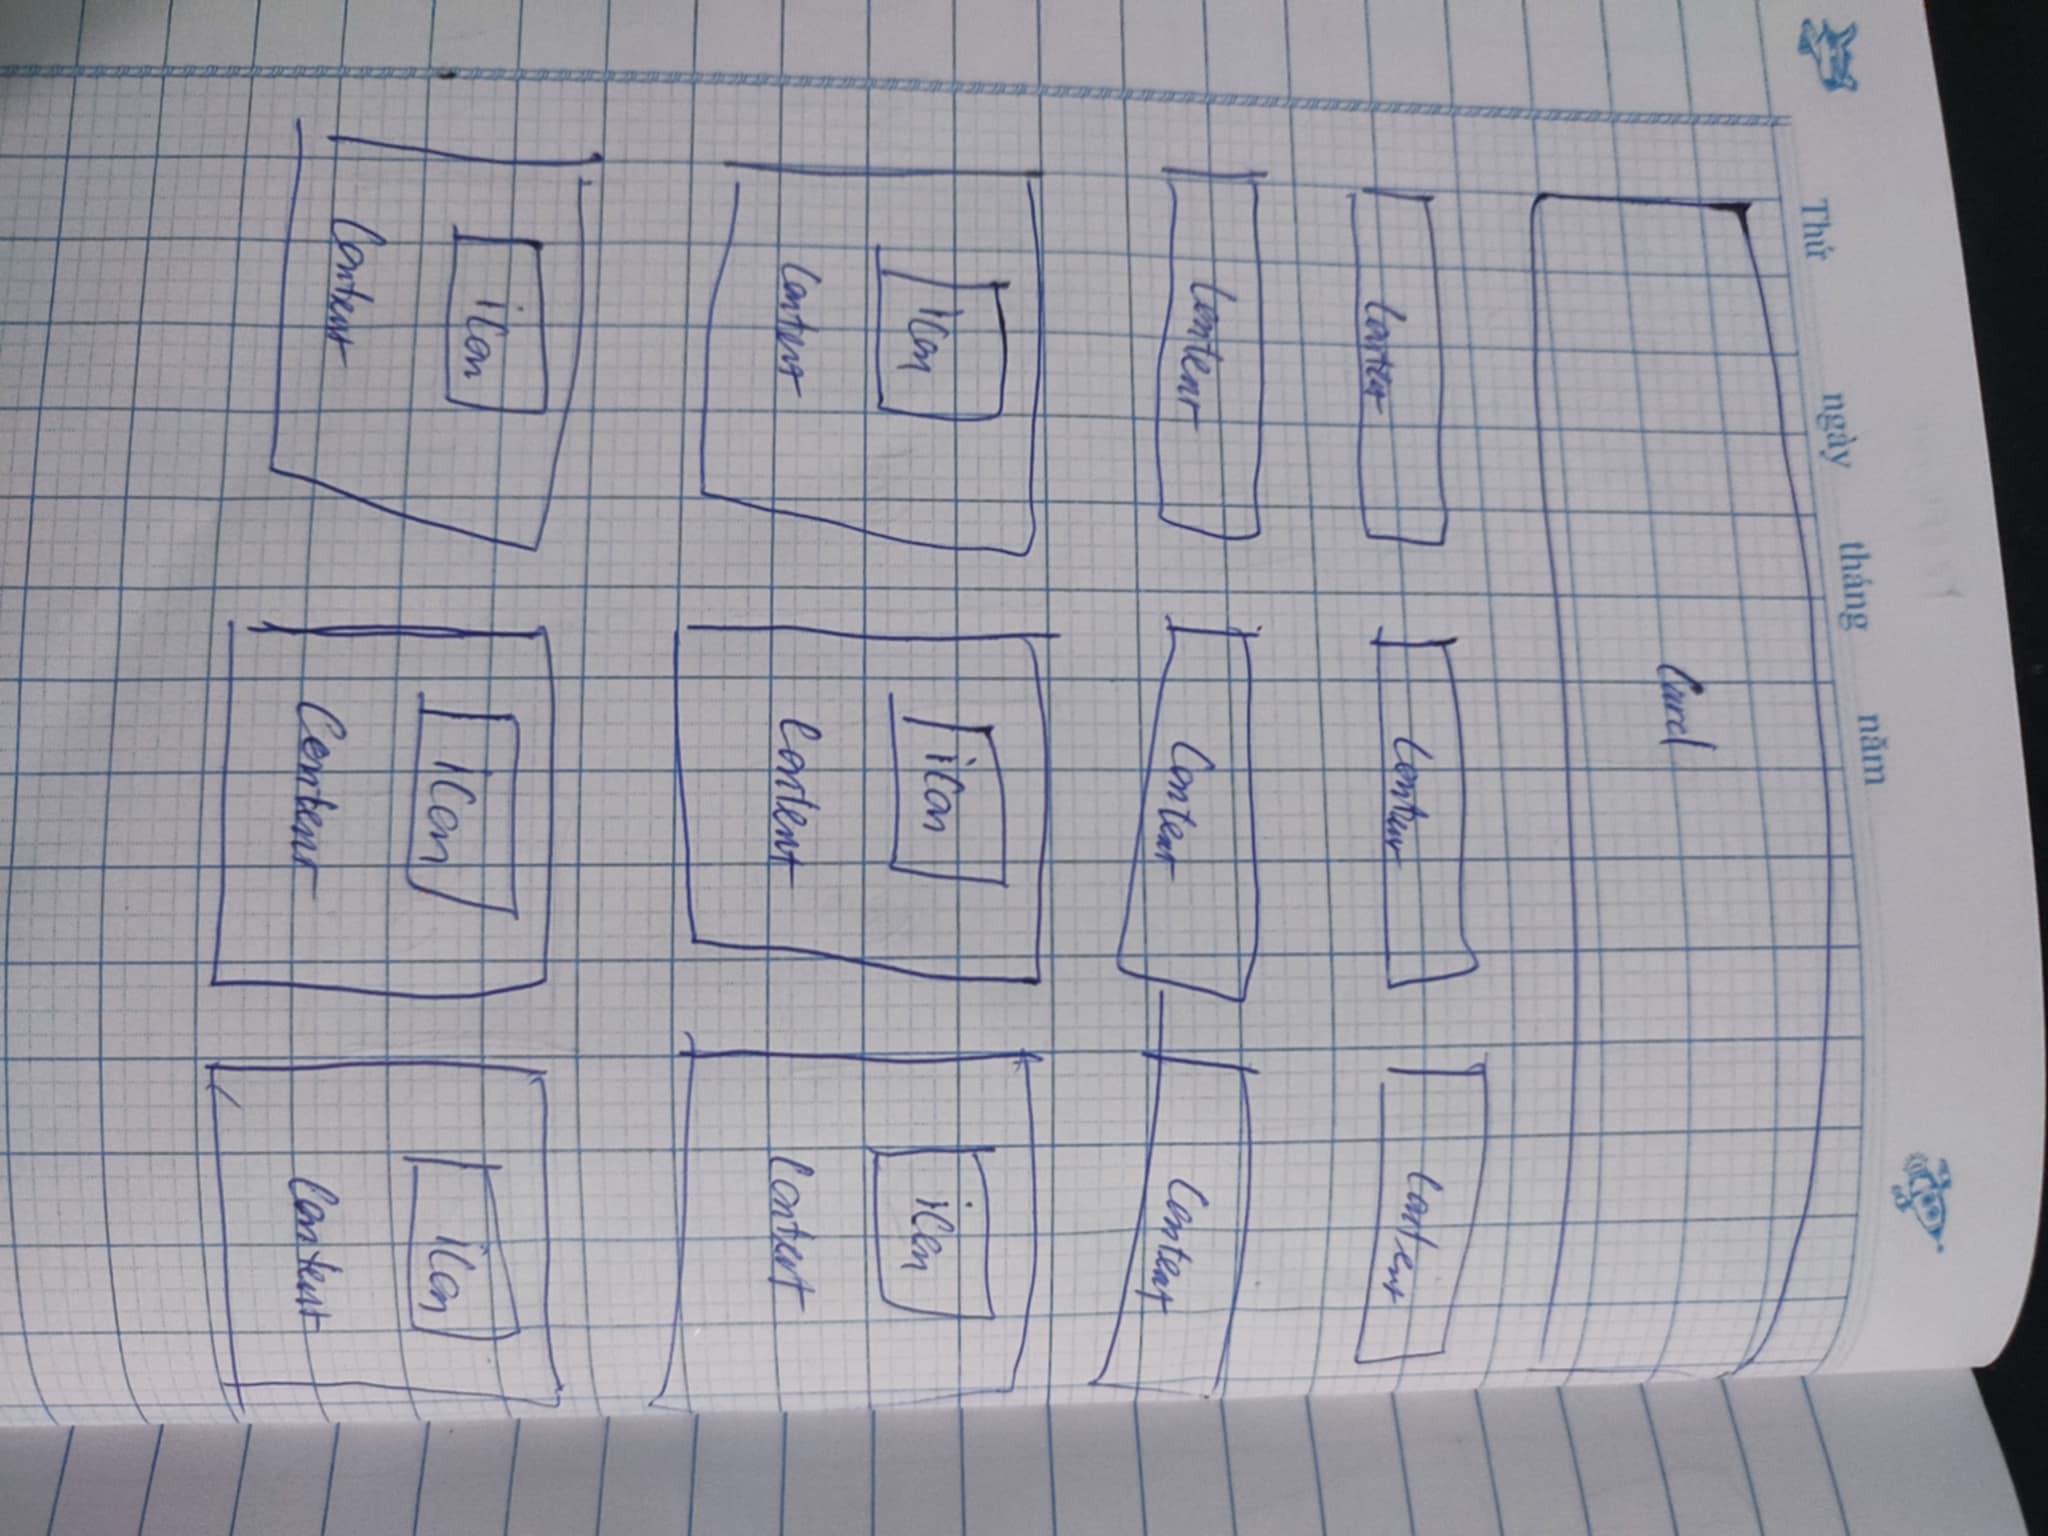 Thứ ngày tháng năm
Card
Content Content Content
Content Content Content
icon icon icon
Content Content Content
icon icon icon
Content Content Content